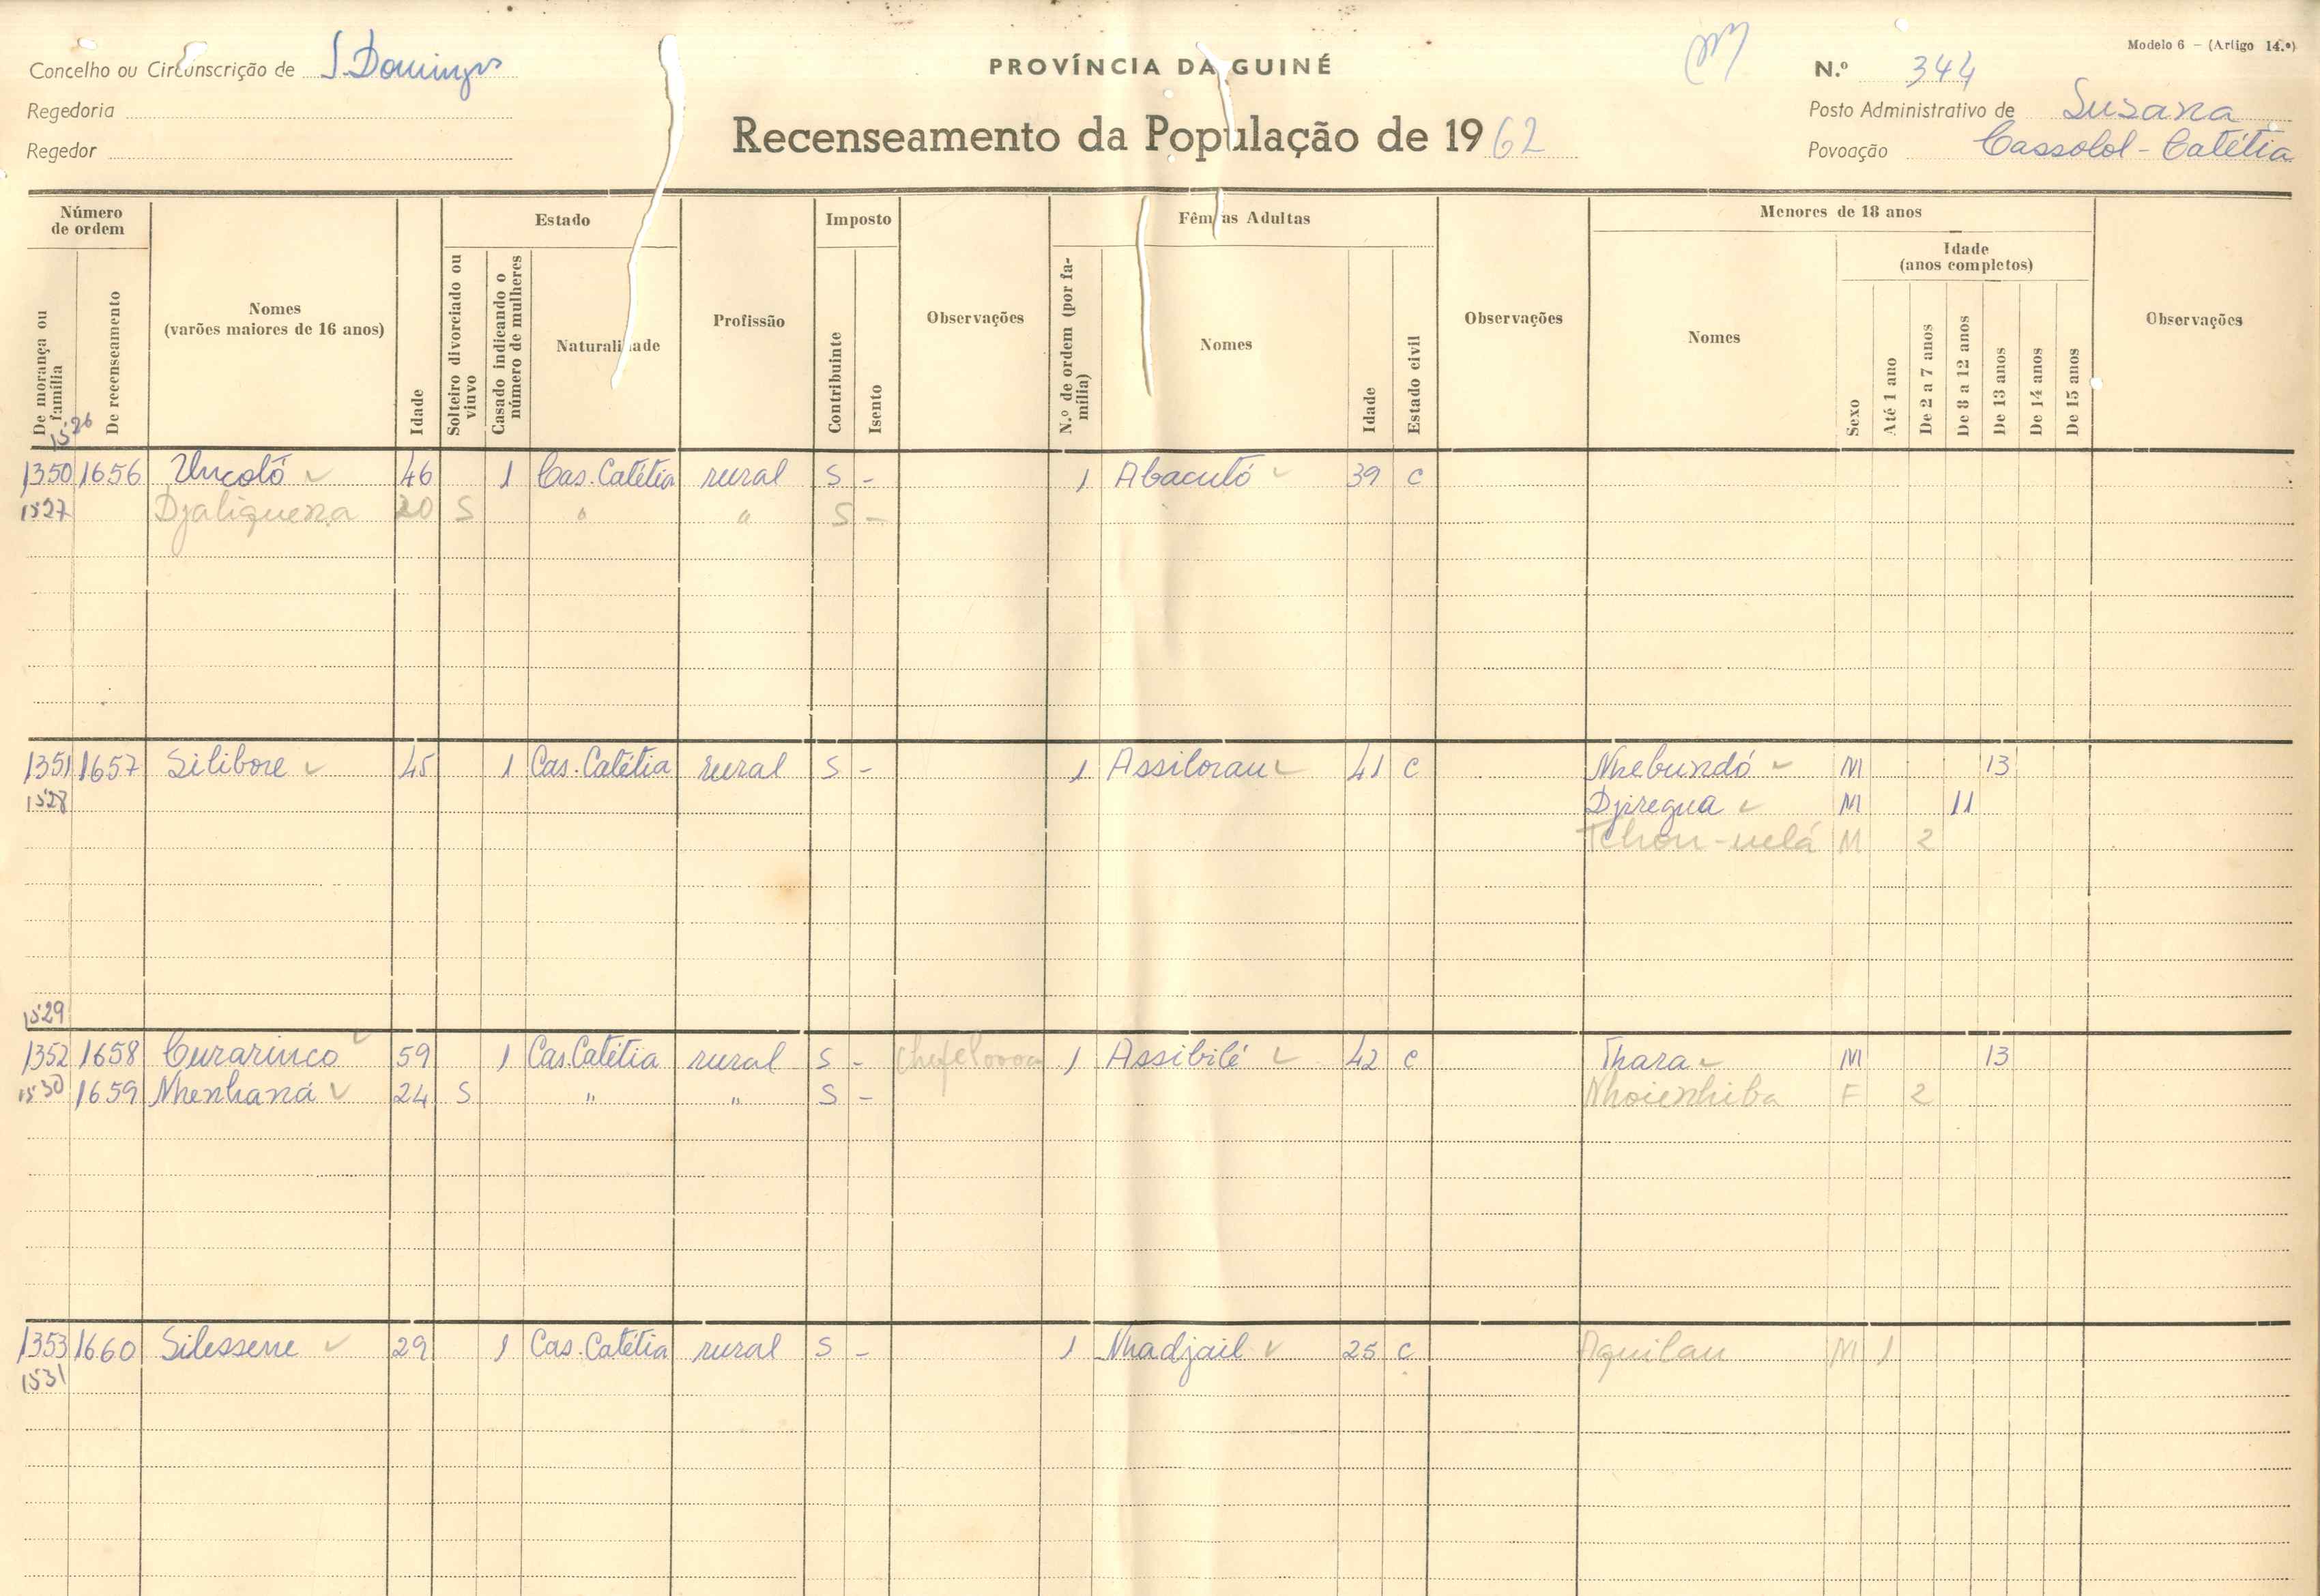 Modelo 6 - (Artigo 14.º)
Concelho ou Circunscrição de S. Domingos
PROVÍNCIA DA GUINÉ
N.º 344
Regedoria
Posto Administrativo de Susana
Recenseamento da População de 1962
Regedor
Povoação Cassolol - Catétia
Número de ordem
De morança ou família
De recenseamento
Nomes
(varões maiores de 16 anos)
Idade
Estado
Solteiro divorciado ou viuvo
Casado indicando o número de mulheres
Naturalidade
Profissão
Imposto
Contribuinte
Isento
Observações
Fêmeas Adultas
N.º de ordem (por família)
Nomes
Idade
Estado civil
Observações
Menores de 18 anos
Nomes
Sexo
Idade
(anos completos)
Até 1 ano
De 2 a 7 anos
De 8 a 12 anos
De 13 anos
De 14 anos
De 15 anos
Observações
1526
1350 1656 Uncoló 46 1 Cas. Catétia rural S - 1 Abacutó 39 C
1527 Djaliquena 20 S " " S -
1351 1657 Silibore 45 1 Cas. Catétia rural S - 1 Assilorau 41 C Nhebundó M 13
1528 Djiregua M 11
Tchou-uelá M 2
1529
1352 1658 Curarinco 59 1 Cas. Catétia rural S - 1 Assibilé 42 C Thara M 13
1530 1659 Nhenhaná 24 S " " S - Nhoienhiba F 2
1353 1660 Silessene 29 1 Cas. Catétia rural S - 1 Nhadjail 25 C Aquilau M 1
1531